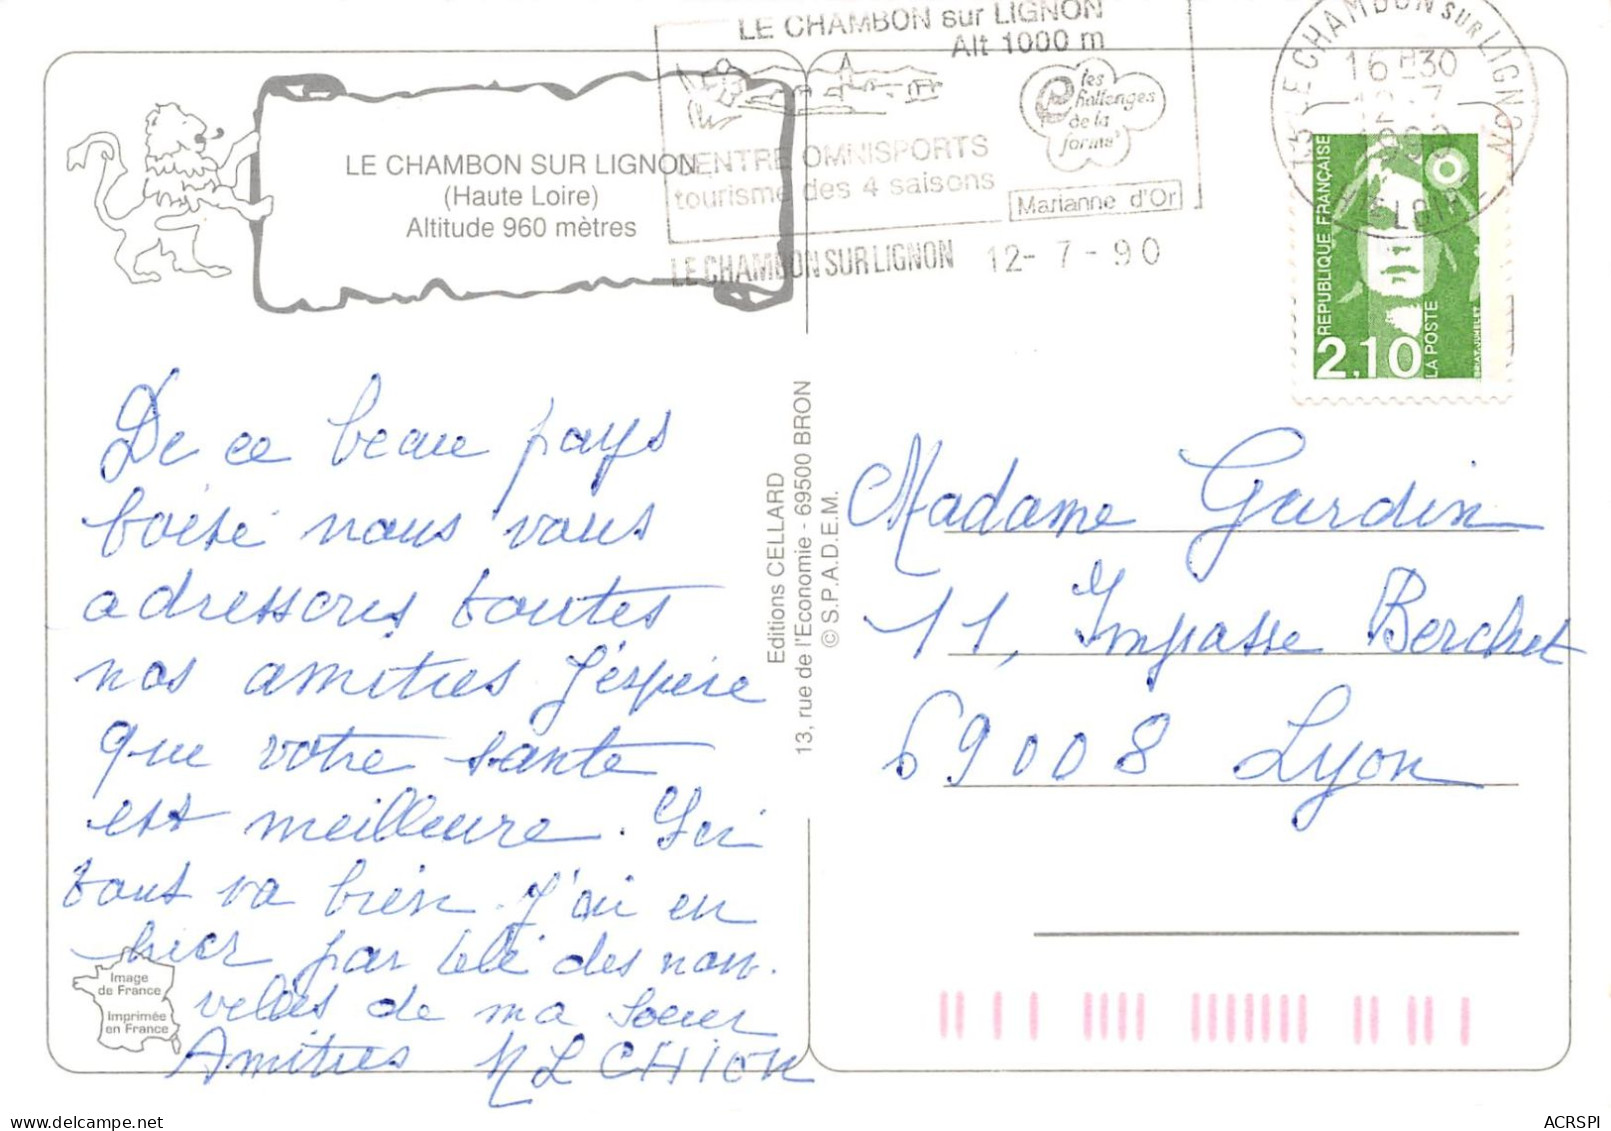 LE CHAMBON sur LIGNON
Alt 1000 m
les
Challenges
de la
forme
CENTRE OMNISPORTS
tourisme des 4 saisons
Marianne d'Or
LE CHAMBON SUR LIGNON 12-7-90
LE CHAMBON SUR LIGNON
16 H 30
12 -7
1990
LE CHAMBON SUR LIGNON
(Haute Loire)
Altitude 960 mètres
REPUBLIQUE FRANÇAISE
2,10
LA POSTE
BRIAT.JUMELET
De ce beau pays
boisé nous vous
adressons toutes
nos amitiés J'espère
que votre santé
est meilleure. Ici
tout va bien. J'ai eu
hier par télé des nou-
velles de ma soeur
Amitiés M L CHION
Image
de France
Imprimée
en France
Editions CELLARD
13, rue de l'Economie - 69500 BRON
© S.P.A.D.E.M.
Madame Gardin
11, Impasse Berchet
69008 Lyon
ACRSPI